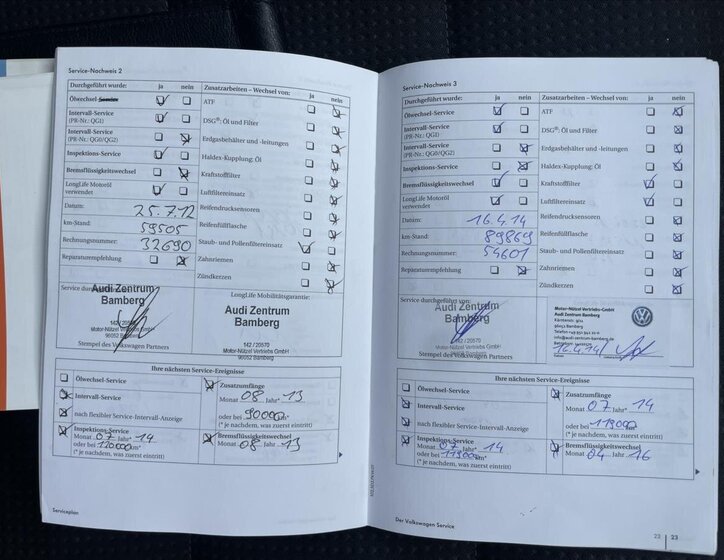 Service-Nachweis 2
Durchgeführt wurde: ja nein
Ölwechsel-Service
Intervall-Service
(PR-Nr.: QG1)
Intervall-Service
(PR-Nr.: QG0/QG2)
Inspektions-Service
Bremsflüssigkeitswechsel
LongLife Motoröl
verwendet
Datum: 25.7.12
km-Stand: 59505
Rechnungsnummer: 32690
Reparaturempfehlung
Zusatzarbeiten – Wechsel von: ja nein
ATF
DSG®: Öl und Filter
Erdgasbehälter und -leitungen
Haldex-Kupplung: Öl
Kraftstofffilter
Luftfiltereinsatz
Reifendrucksensoren
Reifenfüllflasche
Staub- und Pollenfiltereinsatz
Zahnriemen
Zündkerzen
Service durchgeführt von:
Audi Zentrum
Bamberg
142 / 20570
Motor-Nützel Vertriebs-GmbH
96052 Bamberg
Stempel des Volkswagen Partners
LongLife Mobilitätsgarantie:
Audi Zentrum
Bamberg
142 / 20570
Motor-Nützel Vertriebs GmbH
96052 Bamberg
Ihre nächsten Service-Ereignisse
Ölwechsel-Service
Intervall-Service
nach flexibler Service-Intervall-Anzeige
Inspektions-Service
Monat 07 Jahr* 14
oder bei 120000 km*
(* je nachdem, was zuerst eintritt)
Zusatzumfänge
Monat 08 Jahr* 13
oder bei 90000 km*
(* je nachdem, was zuerst eintritt)
Bremsflüssigkeitswechsel
Monat 08 Jahr 13
Serviceplan
Service-Nachweis 3
Durchgeführt wurde: ja nein
Ölwechsel-Service
Intervall-Service
(PR-Nr.: QG1)
Intervall-Service
(PR-Nr.: QG0/QG2)
Inspektions-Service
Bremsflüssigkeitswechsel
LongLife Motoröl
verwendet
Datum: 16.4.14
km-Stand: 89869
Rechnungsnummer: 54601
Reparaturempfehlung
Zusatzarbeiten – Wechsel von: ja nein
ATF
DSG®: Öl und Filter
Erdgasbehälter und -leitungen
Haldex-Kupplung: Öl
Kraftstofffilter
Luftfiltereinsatz
Reifendrucksensoren
Reifenfüllflasche
Staub- und Pollenfiltereinsatz
Zahnriemen
Zündkerzen
Service durchgeführt von:
Audi Zentrum
Bamberg
142 / 20570
Motor-Nützel Vertriebs-GmbH
96052 Bamberg
Stempel des Volkswagen Partners
Motor-Nützel Vertriebs-GmbH
Audi Zentrum Bamberg
96052 Bamberg
16.4.14
Ihre nächsten Service-Ereignisse
Ölwechsel-Service
Intervall-Service
nach flexibler Service-Intervall-Anzeige
Inspektions-Service
Monat 07 Jahr* 14
oder bei 119000 km*
(* je nachdem, was zuerst eintritt)
Zusatzumfänge
Monat 07 Jahr* 14
oder bei 119000
(* je nachdem, was zuerst eintritt)
Bremsflüssigkeitswechsel
Monat 04 Jahr 16
Der Volkswagen Service
22 23